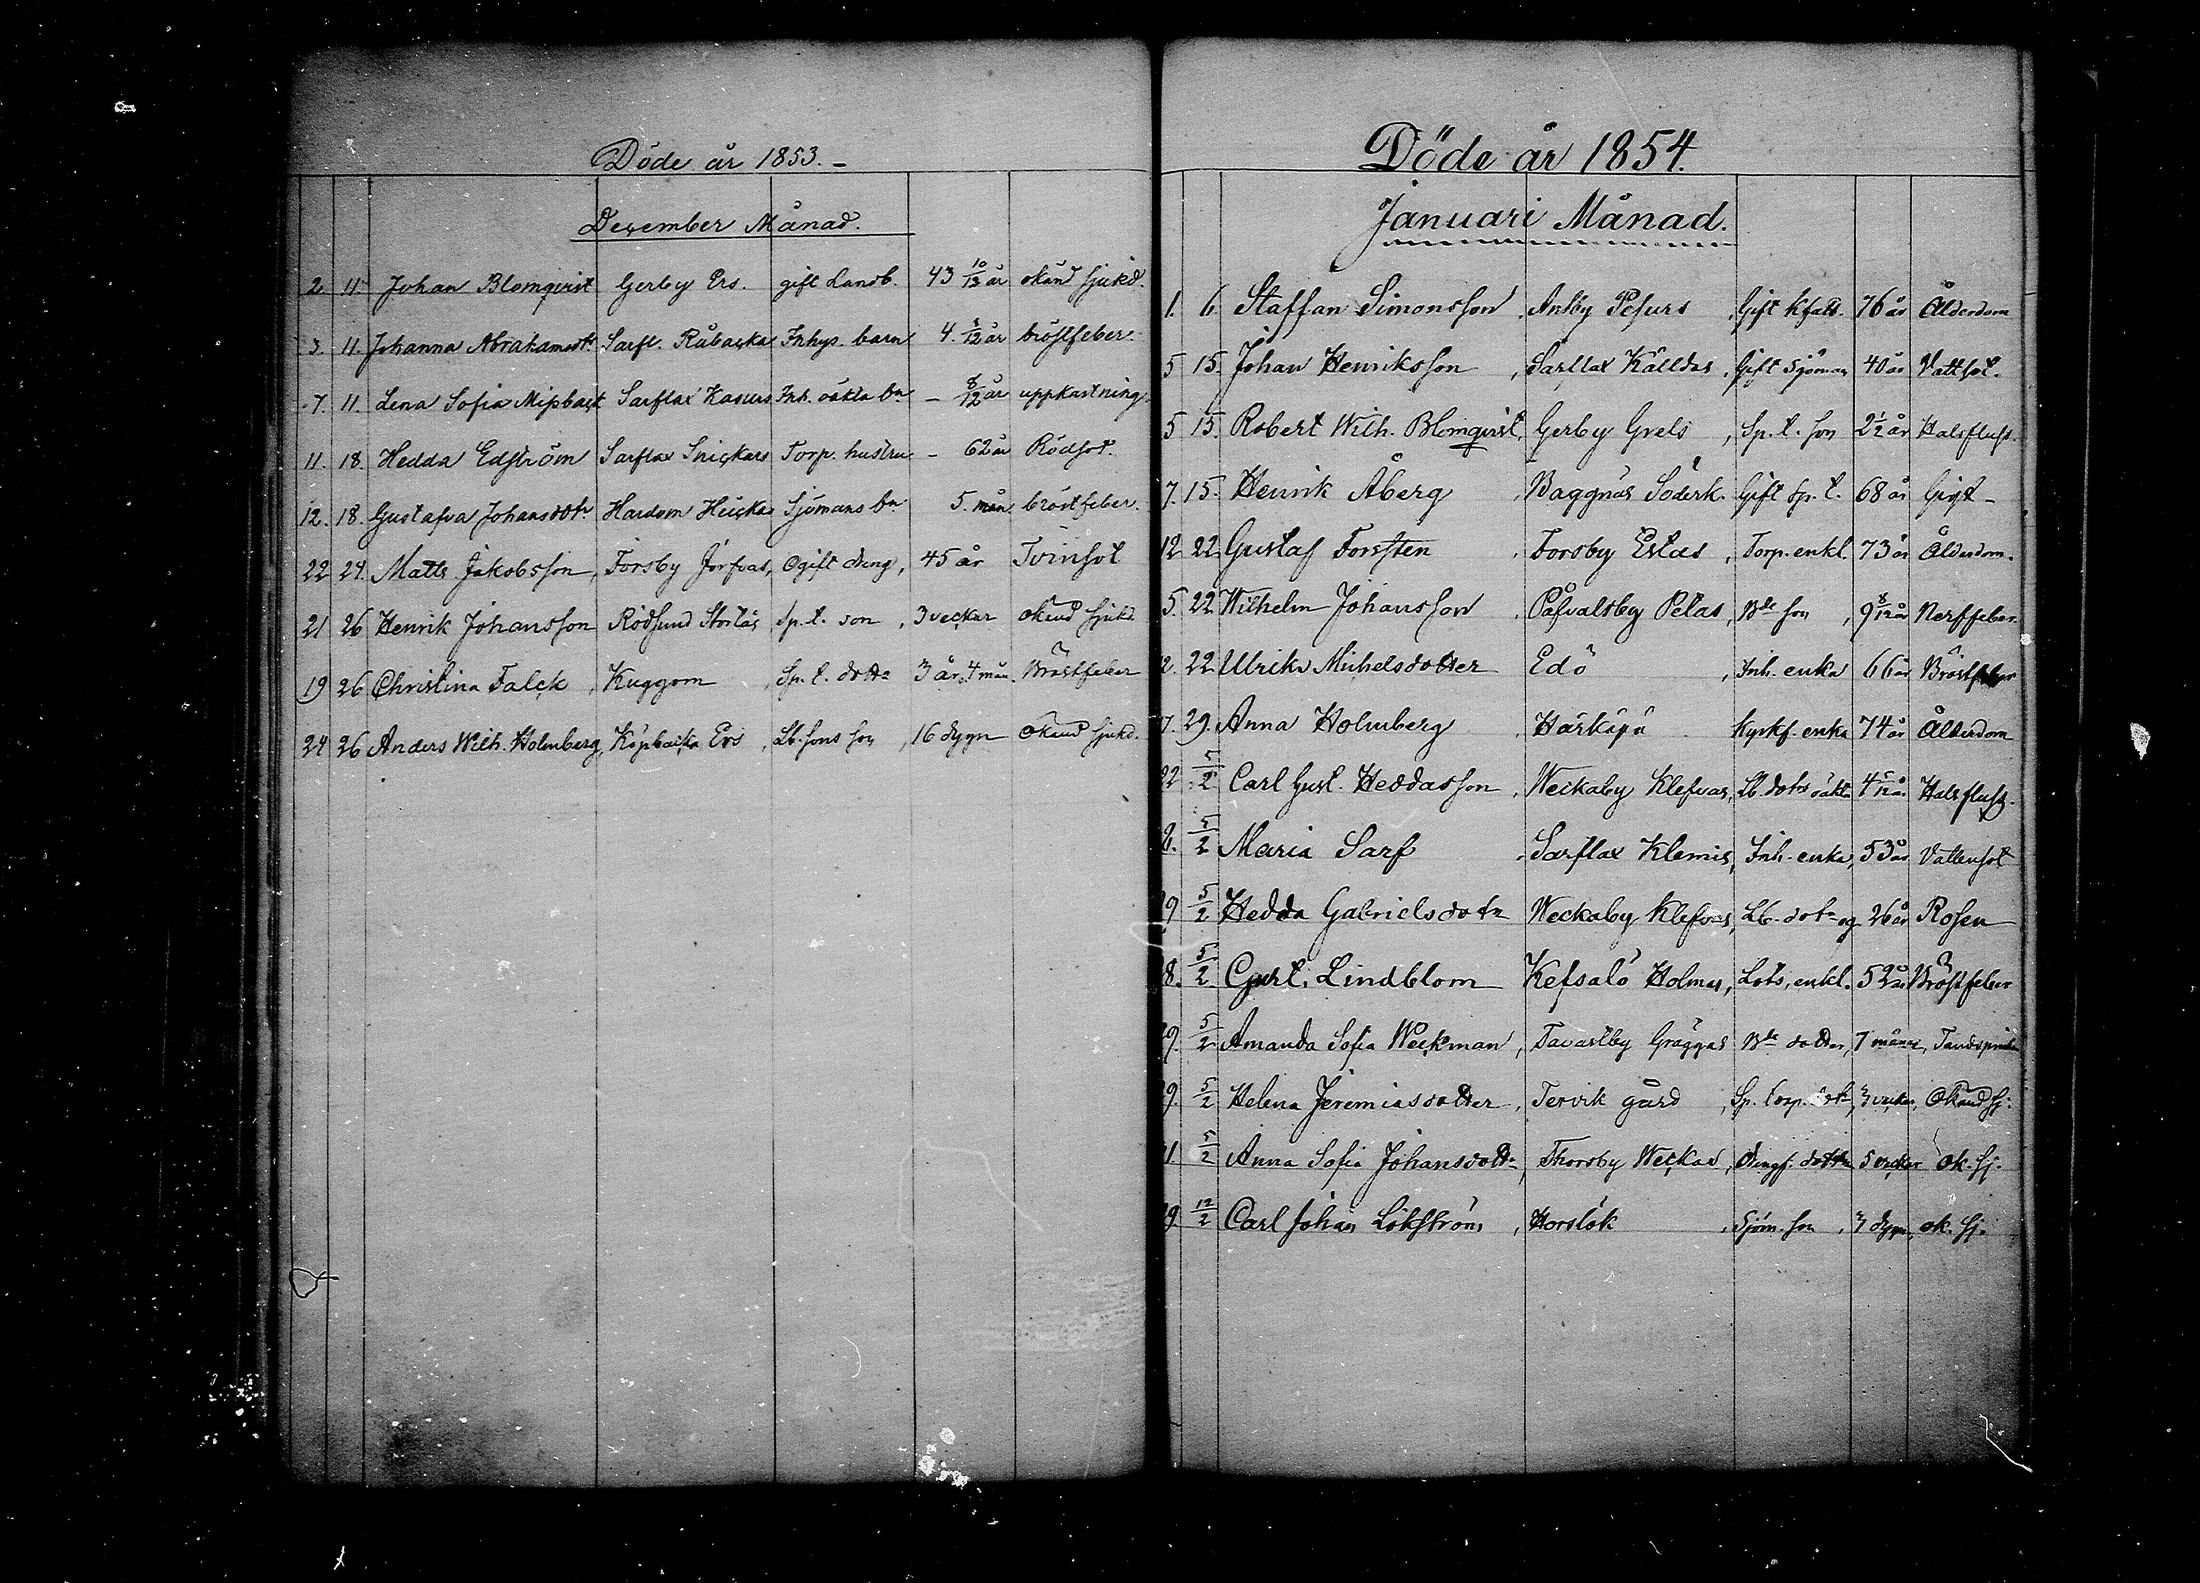 Döde år 1853.
December Månad.
2 11. Johan Blomqvist Gerby Ers. gift Landb. 43 10/12 år okänd sjukd.
3. 11. Johanna Abrahamsdtr Sarfl. Råbacka Inhys. barn 4. 5/12 år bröstfeber.
7. 11. Lena Sofia Sarflax Inh. oäkta bn – 8/12 år uppkastning
11. 18. Hedda Edström Sarflax Snickars Torp. hustru – 62 år Rödsot.
12. 18. Gustafva Johansdotr Hardom Heickas Sjömans bn 5. mån. bröstfeber.
22 24. Matts Jakobsson, Forsby Jorfvas, Ogift dreng, 45 år Tvinsot
21 26 Henrik Johansson Rödsund Storläs Sp. t. son, 3 veckar okänd sjukd.
19 26 Christina Falck, Kuggom, Sp. t. dottr 3 år, 4 mån. Bröstfeber
24 26 Anders Wilh. Holmberg, Köpbacka Ers, Lb. sons son, 16 dygn Okänd sjukd.
Döde år 1854.
Januari Månad.
1. 6. Staffan Simonsson, Anby Pesurs, Gift 76 år Ålderdom
5 15. Johan Henriksson, Sarflax Källdas, Gift Sjöman 40 år Vattsot.
5 15. Robert Wilh. Blomqvist, Gerby Grels, Sp. t. son 2 1/2 år Halsfluss.
7. 15. Henrik Åberg, Baggnäs Söderk. Gift Sp. t. 68 år Gigt –
12 22 Gustaf Forsten, Forsby Estas, Torp. enkl. 73 år Ålderdom.
5. 22 Wilhelm Johansson, Påfvalsby Petas, Bde son, 9 8/12 år Nerffeber.
2. 22 Ulrika Michelsdotter Edö, Inh. enka 66 år Bröstfeber
7. 29. Anna Holmberg, Härkäpä Kyrkf. enka 74 år Ålderdom
22 5/2 Carl Gust. Heddasson, Weckaby Klefvas, Lb. dotrs oäkta 4 5/12 år Halsfluss.
2. 5/2 Maria Sarf, Sarflax Klemis, Inh. enka, 53 år Vattensot
9 5/2 Hedda Gabrielsdotr Weckaby Klefvas, Lb. dotr og 26 år Rosen
8. 5/2 Gust. Lindblom Kefsalö Holmas, Lots, enkl. 52 år Bröstfeber
9. 5/2 Amanda Sofia Weckman, Tavastby Gräggas Bde dotter, 7 månar,
9. 5/2 Helena Jeremiasdotter, Tervik gård, Sp. torp. dotr, 3 veckar, Okänd sj.
1. 5/2 Anna Sofia Johansdottr, Thorsby Weckas, drengs. dottr 5 veckar ok. sj.
9 12/2 Carl Johan Lökström, Horslök, Sjöm. son, 3 dygn, ok. sj.